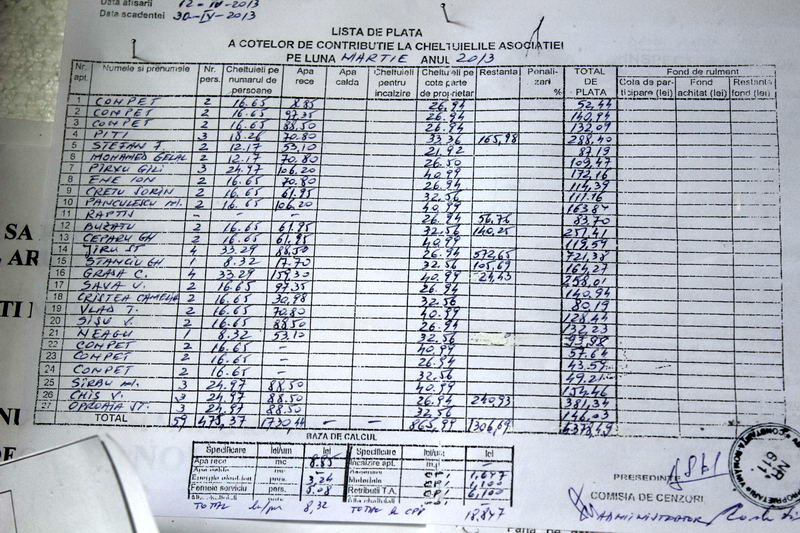 Data afisarii 12-IV-2013
Data scadentei 30-IV-2013
LISTA DE PLATA
A COTELOR DE CONTRIBUTIE LA CHELTUIELILE ASOCIATIEI
PE LUNA MARTIE ANUL 2013
Nr. apt. Numele si prenumele Nr. pers. Cheltuieli pe numarul de persoane Apa rece Apa calda Cheltuieli pentru incalzire Cheltuieli pe cote parte de proprietar Restanta Penalizari % TOTAL DE PLATA Fond de rulment
Cota de participare (lei) Fond achitat (lei) Restanta fond (lei)
1 COMPET 2 16.65 8.85 26.94 52.44
2 COMPET 2 16.65 97.35 26.94 140.94
3 COMPET 2 16.65 88.50 26.94 132.09
4 PITI 3 18.26 70.80 33.36 165,98 288,40
5 STEFAN J. 2 12.17 53,10 21.92 87,19
6 MOHAMED GELAL 2 12.17 70.80 26.50 109,47
7 PIRVU GILI 3 24.97 106.20 40.99 172,16
8 ENE ION 2 16.65 70.80 26.94 114,39
9 CRETU SORIN 2 16.65 61.95 32.56 111.16
10 PANCULESCU M. 2 16.65 106.20 40.99 163.84
11 RAPTIS - - - 26.94 56,76 83,70
12 BUZATU 2 16.65 61.95 32.56 140,25 251,41
13 CEPARU GH 2 16.65 61,95 40.99 119,59
14 JIRU ST 4 33.29 88,50 26.94 572,65 721,38
15 STANCIU GH 1 8.32 17.70 32.56 105,69 164,27
16 GRASA C. 4 33.29 159,30 40.99 24,43 258,01
17 SAVA V. 2 16.65 97.35 26.94 140,94
18 CRISTEA CAMELIA 2 16.65 30,98 32.56 80,19
19 VLAD T. 2 16.65 70,80 40.99 128,44
20 SISU V. 2 16.65 88.50 26.94 132,23
21 NEAGU 1 8.32 53,10 32.56 93,98
22 COMPET 2 16.65 - 40,99 57.64
23 COMPET 2 16.65 - 26.94 43.57
24 COMPET 2 16.65 - 32.56 49.21
25 SIRBU M. 3 24.97 88,50 40.99 154,46
26 CHIS V. 3 24.97 88.50 26.94 240,93 381,34
27 OPROAIA ST. 3 24.97 88.50 32.56 146,03
TOTAL 59 475,37 1730,44 - - 865,99 1306,69 4373,49
BAZA DE CALCUL
Specificare lei/um lei Specificare lei/um lei
Apa rece mc 8.85 Incalzire apt. m.p. -
CPI 1,647
Energie pers. 3,24 Materiale CPI
Femeie serviciu pers. 5.08 Retributii T.A. CPI 6,100
TOTAL 8,32 TOTAL CPI 18.847
PRESEDINTE
COMISIA DE CENZORI
ADMINISTRATOR
NR. 611
SA
AR